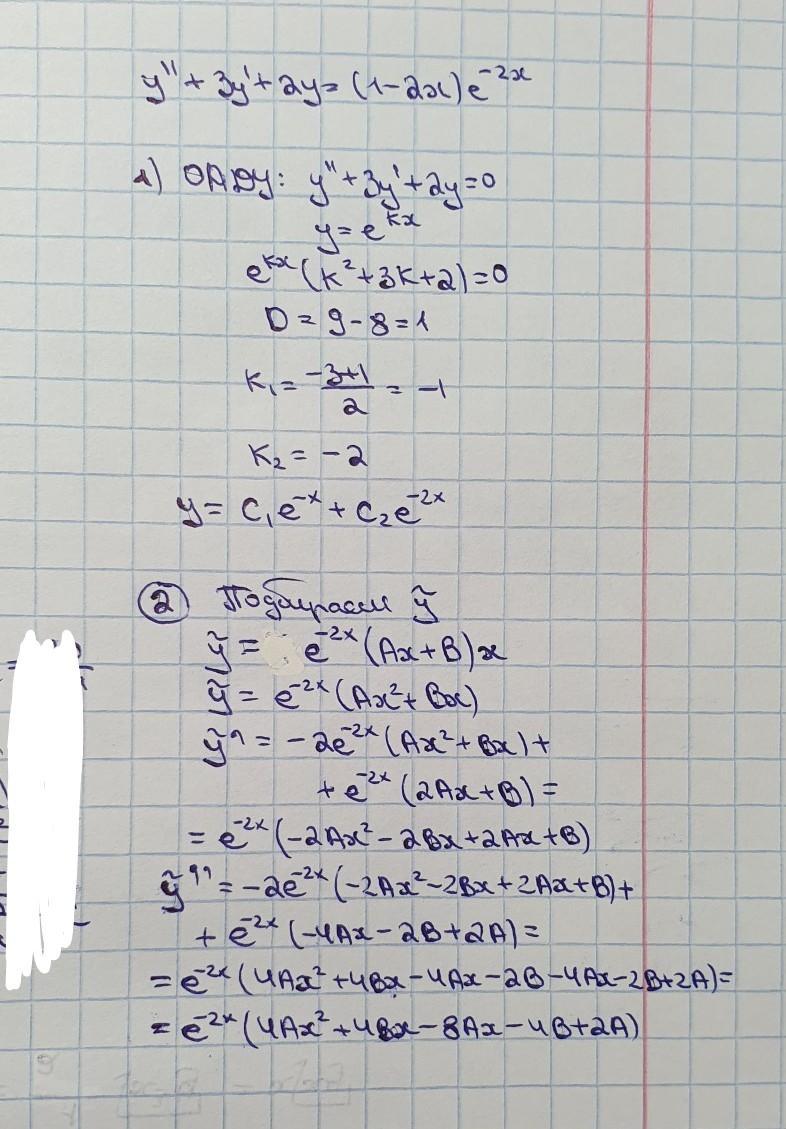 y'' + 3y' + 2y = (1-2x)e^{-2x}
1) ОЛДУ: y'' + 3y' + 2y = 0
y = e^{kx}
e^{kx}(k^2 + 3k + 2) = 0
D = 9 - 8 = 1
K_1 = \frac{-3+1}{2} = -1
K_2 = -2
y = C_1e^{-x} + C_2e^{-2x}
② Подбираем ỹ
ỹ = e^{-2x}(Ax+B)x
ỹ = e^{-2x}(Ax^2 + Bx)
ỹ' = -2e^{-2x}(Ax^2 + Bx) +
+ e^{-2x}(2Ax+B) =
= e^{-2x}(-2Ax^2 - 2Bx + 2Ax + B)
ỹ'' = -2e^{-2x}(-2Ax^2 - 2Bx + 2Ax + B) +
+ e^{-2x}(-4Ax - 2B + 2A) =
= e^{-2x}(4Ax^2 + 4Bx - 4Ax - 2B - 4Ax - 2B + 2A) =
= e^{-2x}(4Ax^2 + 4Bx - 8Ax - 4B + 2A)